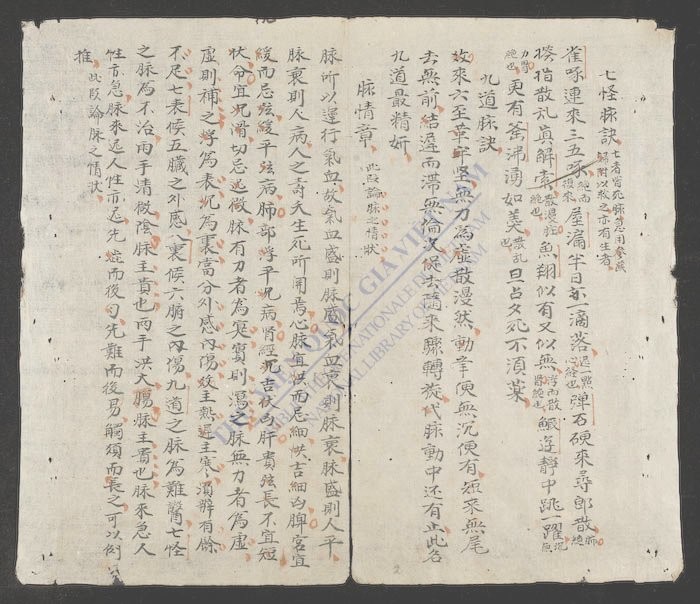 七怪脉訣 七者皆死脉急用參茂解附以救之亦有生者
雀啄連來三五啄 絶而復來 屋漏半日亦滴落 遲一點胃絶也 弹石硬來尋郎散 肺絶
搭指散乱真解索 散乱絶也 魚翔似有又似無 鰕遊靜中跳一躍
更有釜沸湧如羹 散乱也 旦占夕死不須藥
九道脉訣
來六至革牢堅無力為虛散漫然動 便無沉便有短来無尾
去無前結遲而滯無倫次促去隨來驟轉旋代脉動中还有止此名
九道最精妍
脉情章 此段論脉之情状
脉所以運行氣血故氣血盛則脉盛氣血衰則脉衰脉盛則人平
脉衰則人病人之壽夭生死所用焉心脉宜洪而忌細洪吉細凶脾宮宜
緩而忌弦緩平弦病肺部浮平沉病肾經沉吉伏凶肝貴弦長不宜短
伏命宜沉滑切忌迟微脉有力者為寔實則瀉之脉無力者為虛
虛則補之浮為表沉為裏當分外感内傷数主熱遲主寒須辨有餘
不足七表候五臟之外感八裏候六腑之内傷九道之脉為難醫七怪
之脉為不治両手清微陰脉主貴也両手洪大陽脉主貴也脉來急人
性亦急脉來迟人性亦迟先 而後 先難而後易觸類而長之可以例
推 此段論脉之情状